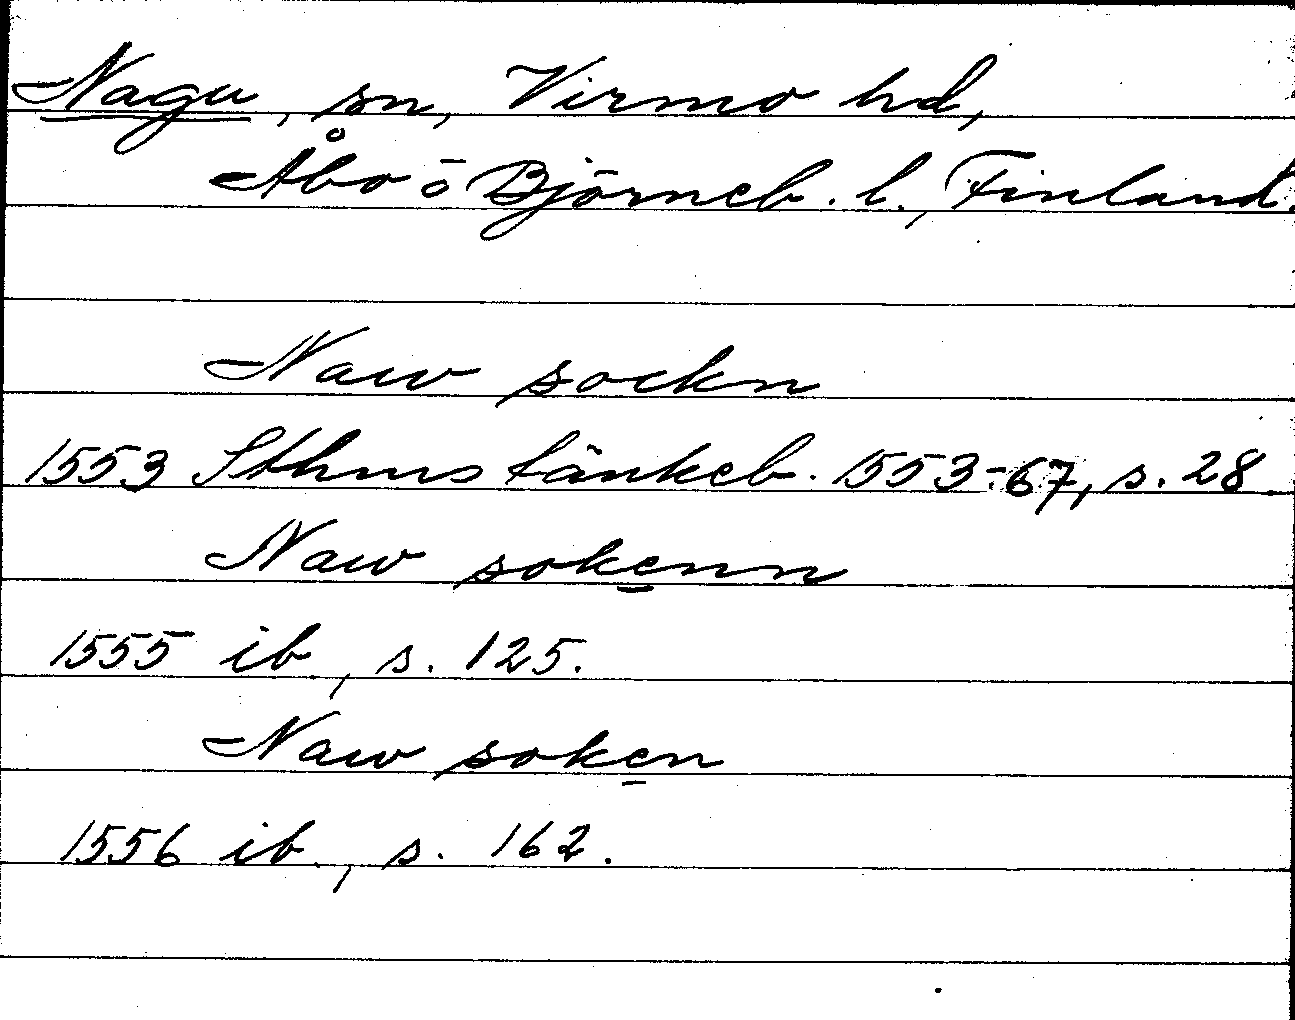 Nagu, sn, Virmo hd,
Åbo o Björneb. l., Finland.
Naw sockn
1553 Sthms tänkeb. 1553-67, s. 28
Naw sokenn
1555 ib., s. 125.
Naw soken
1556 ib., s. 162.